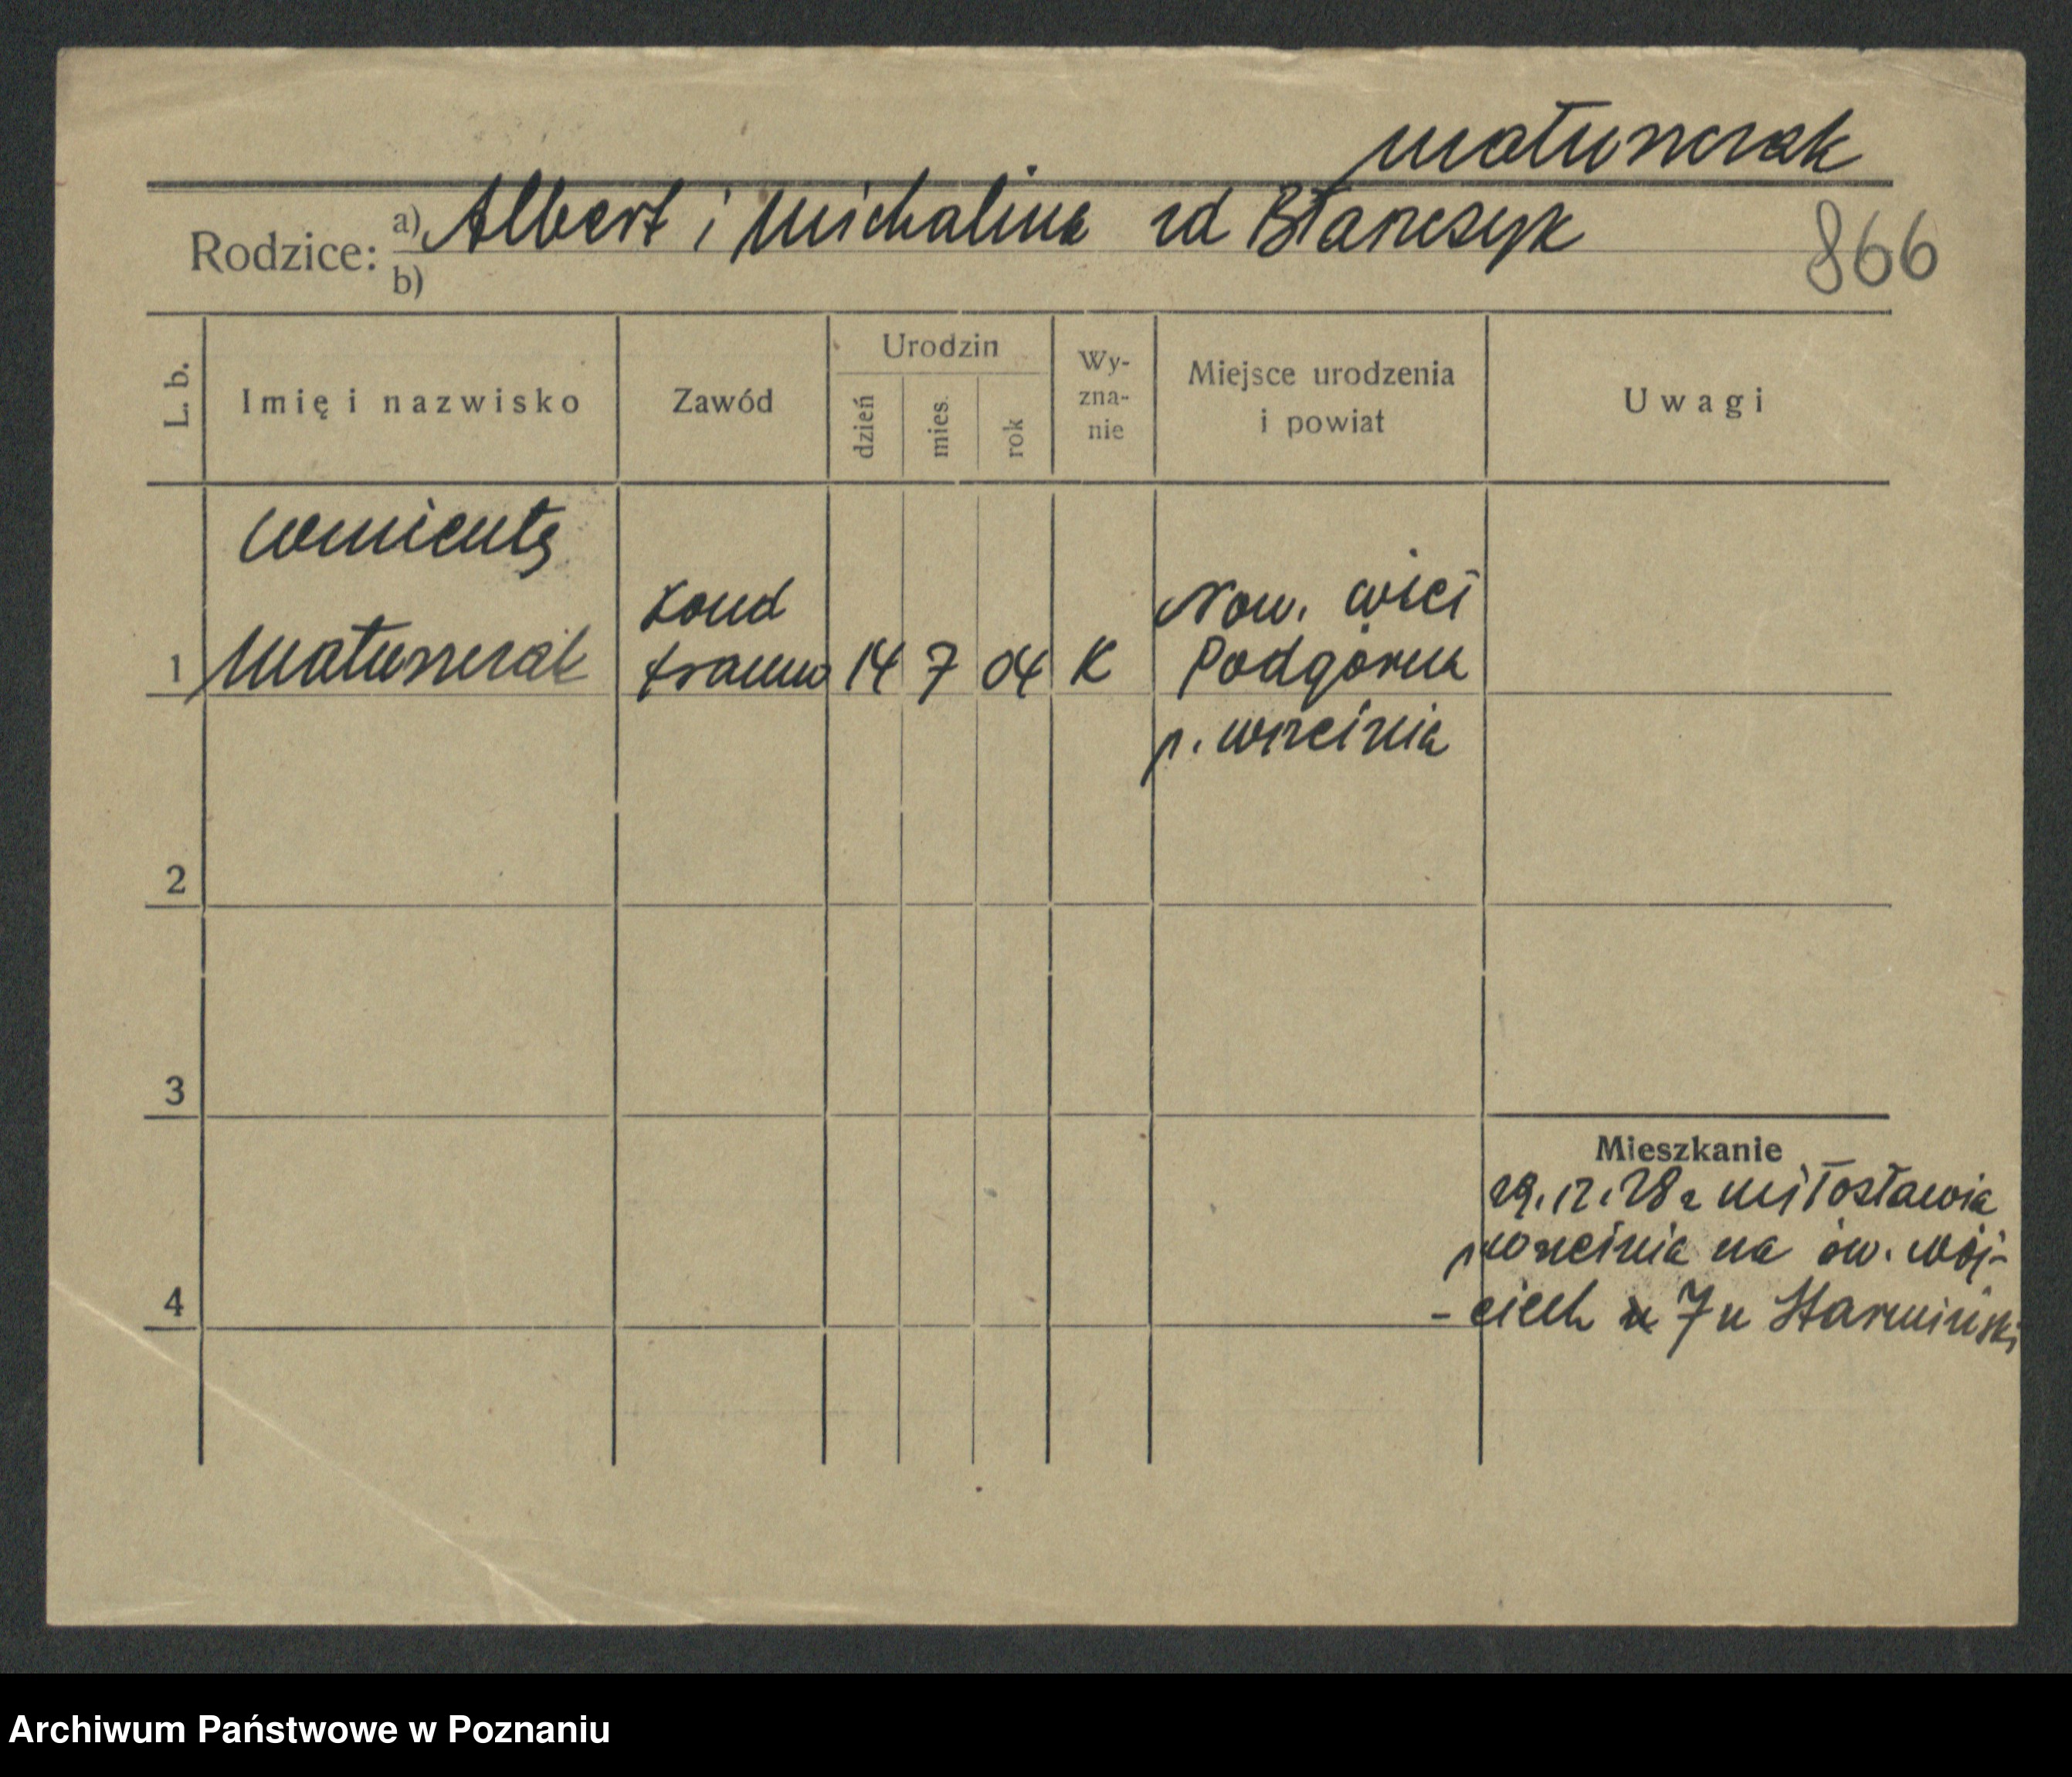 Matuszczak
Rodzice: a) Albert i Michalina zd Błaszczyk
b)
866
L. b.
Imię i nazwisko
Zawód
Urodzin
dzień
mies.
rok
Wy-
zna-
nie
Miejsce urodzenia
i powiat
Uwagi
1
Matuszczak
kond
tramw
14 7 04 K
Now. wieś
Podgórna
p. września
2
3
4
Mieszkanie
29.12.28 z Miłosławia
p września na św. woj-
-ciech 7 u
Archiwum Państwowe w Poznaniu